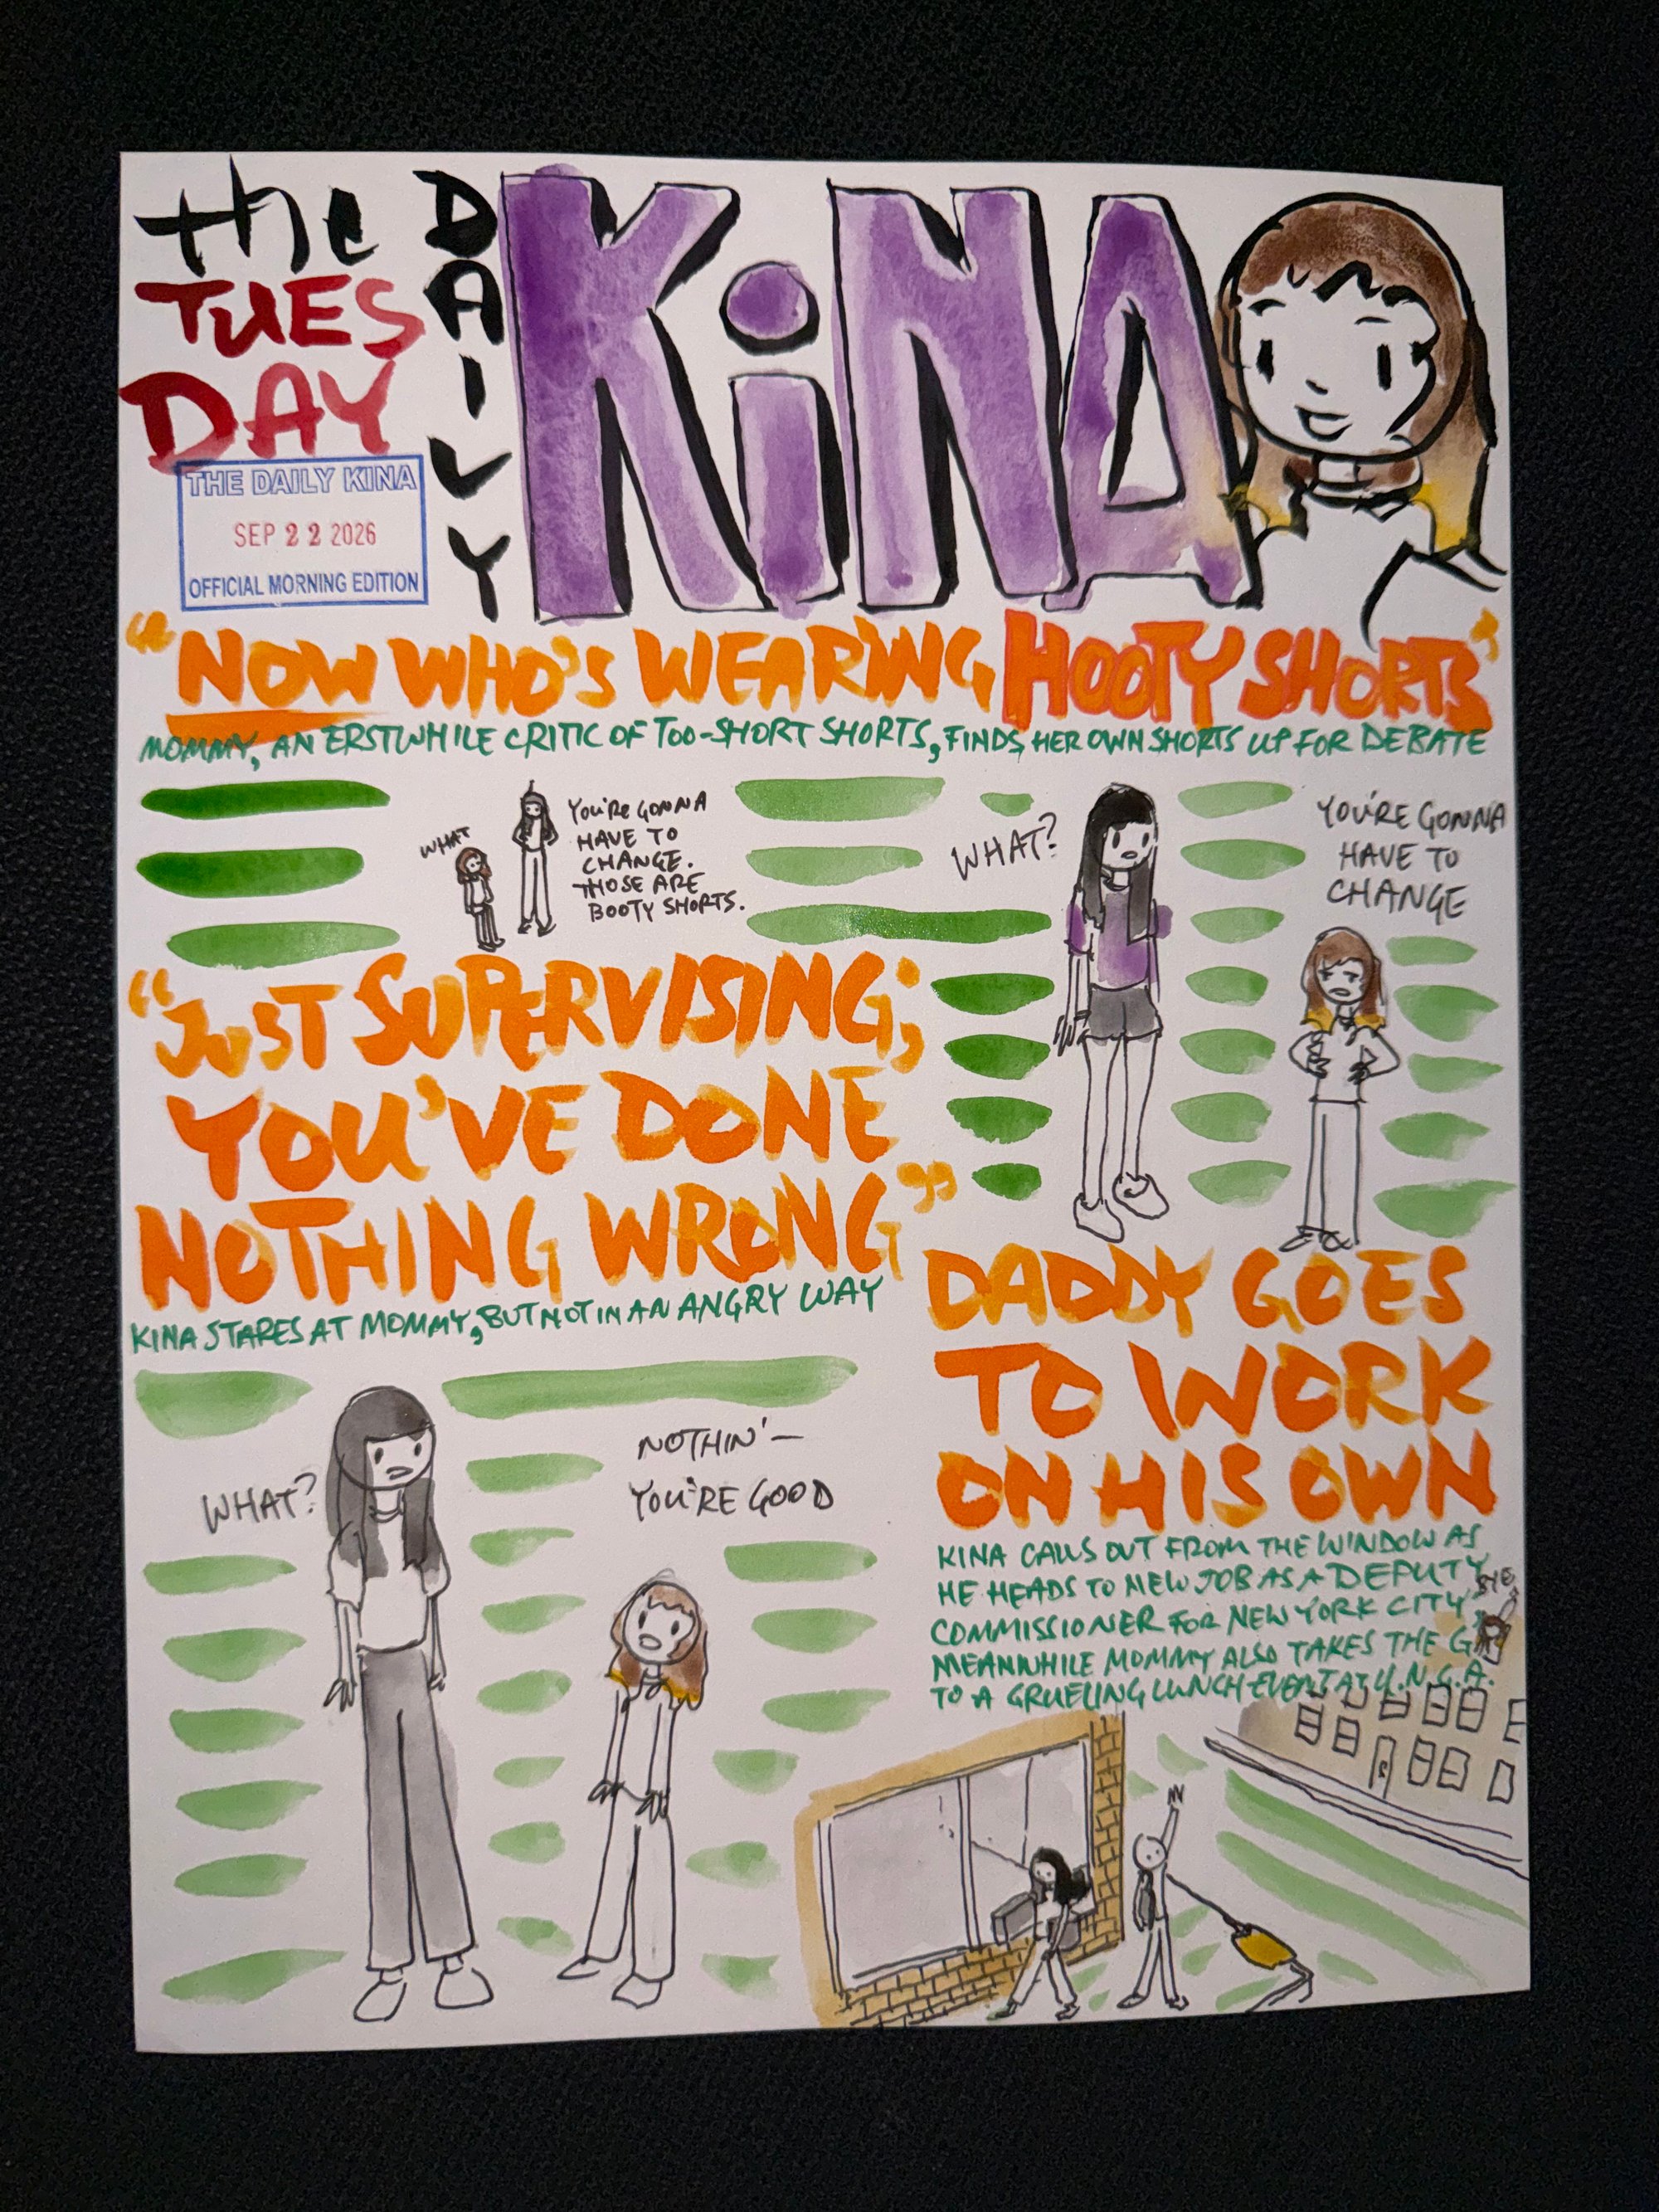 the
TUES
DAY
DAILY
KiNA
THE DAILY KINA
SEP 22 2026
OFFICIAL MORNING EDITION
"NOW WHO'S WEARING HOOTY SHORTS"
MOMMY, AN ERSTWHILE CRITIC OF TOO-SHORT SHORTS, FINDS HER OWN SHORTS UP FOR DEBATE
WHAT
YOU'RE GONNA
HAVE TO
CHANGE.
THOSE ARE
BOOTY SHORTS.
WHAT?
YOU'RE GONNA
HAVE TO
CHANGE
"JUST SUPERVISING;
YOU'VE DONE
NOTHING WRONG"
KINA STARES AT MOMMY, BUT NOT IN AN ANGRY WAY
WHAT?
NOTHIN'—
YOU'RE GOOD
DADDY GOES
TO WORK
ON HIS OWN
KINA CALLS OUT FROM THE WINDOW AS
HE HEADS TO NEW JOB AS A DEPUTY
COMMISSIONER FOR NEW YORK CITY;
MEANWHILE MOMMY ALSO TAKES THE G
TO A GRUELING LUNCH EVENT AT U.N.G.A.
BYE